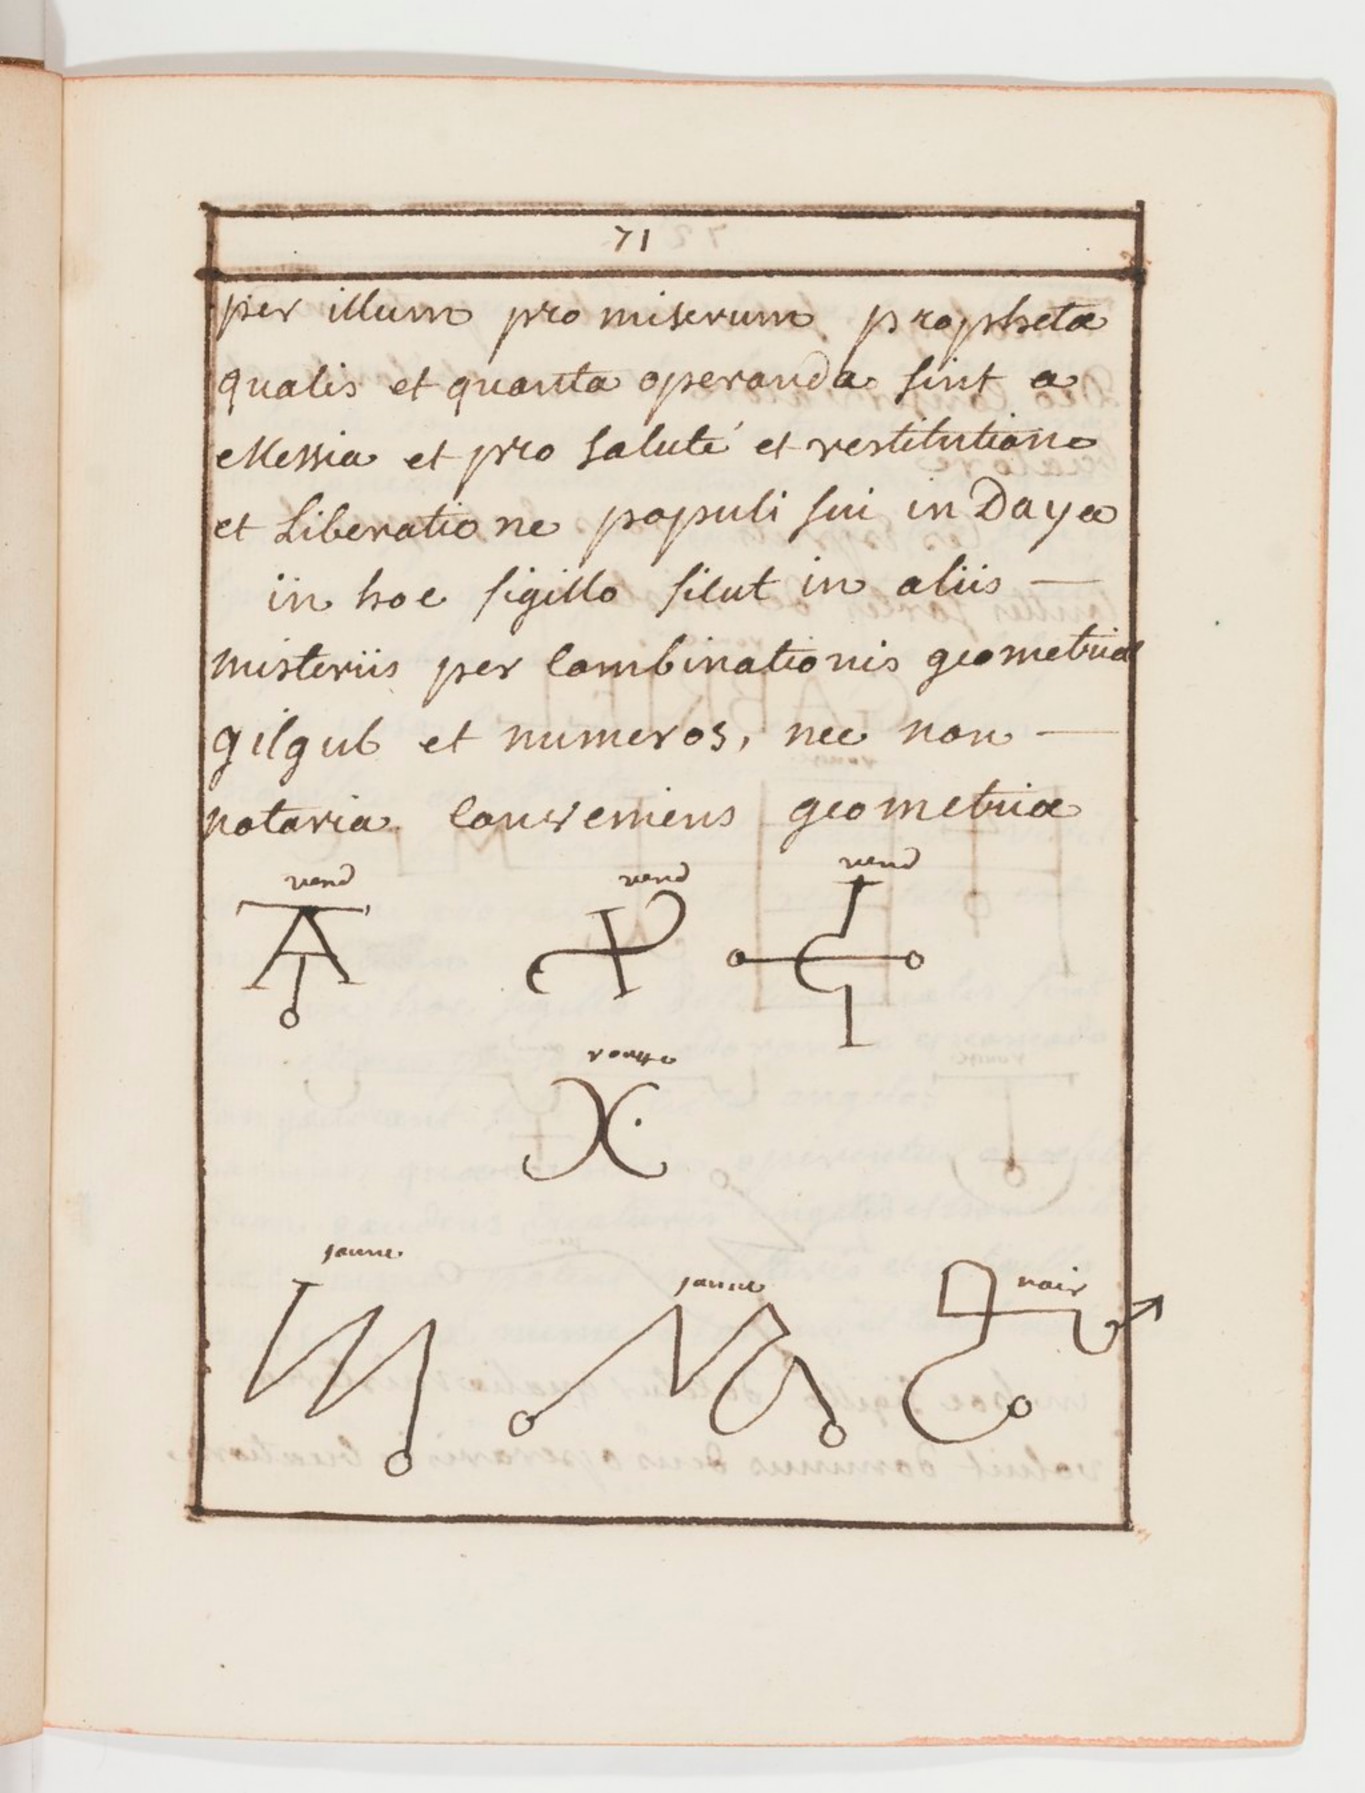 71
per illum pro miserum prophetæ
qualis et quanta operanda sint a
Messia et pro saluté et restitutione
et Liberatione populi sui in Daya
iin hoc sigillo sicut in aliis —
misteriis per combinationis geometriæ
gilgul et numeros, nec non —
notaria conveniens geometriæ
verd verd verd
rouge
jaune jaune noir